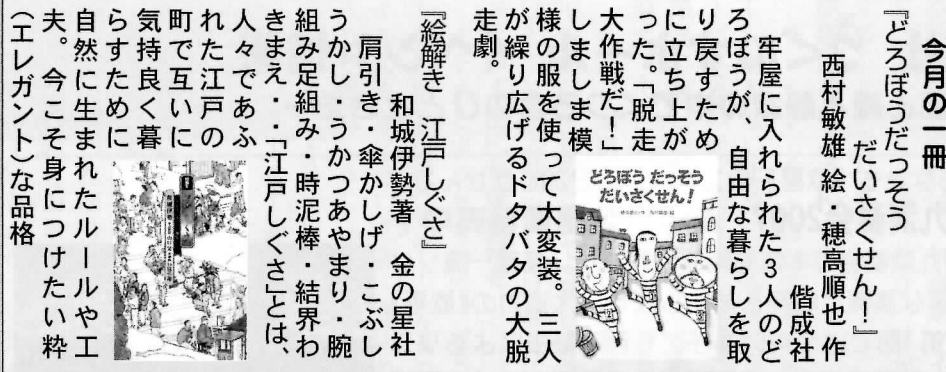 今月の一冊
『どろぼうだっそう
だいさくせん!』
西村敏雄 絵 穂高順也 作
偕成社
牢屋に入れられた3人のど
ろぼうが、自由な暮らしを取
り戻すため
に立ち上が
った。「脱走
大作戦だ!」
しましま模
様の服を使って大変装。三人
が繰り広げるドタバタの大脱
走劇。
どろぼう だっそう
だいさくせん!
『絵解き 江戸しぐさ』
和城伊勢著 金の星社
肩引き・傘かしげ・こぶし
うかし・うかつあやまり・腕
組み足組み・時泥棒・結界わ
きまえ・・「江戸しぐさ」とは、
人々であふ
れた江戸の
町で互いに
気持良く暮
らすために
自然に生まれたルールや工
夫。今こそ身につけたい粋
(エレガント)な品格